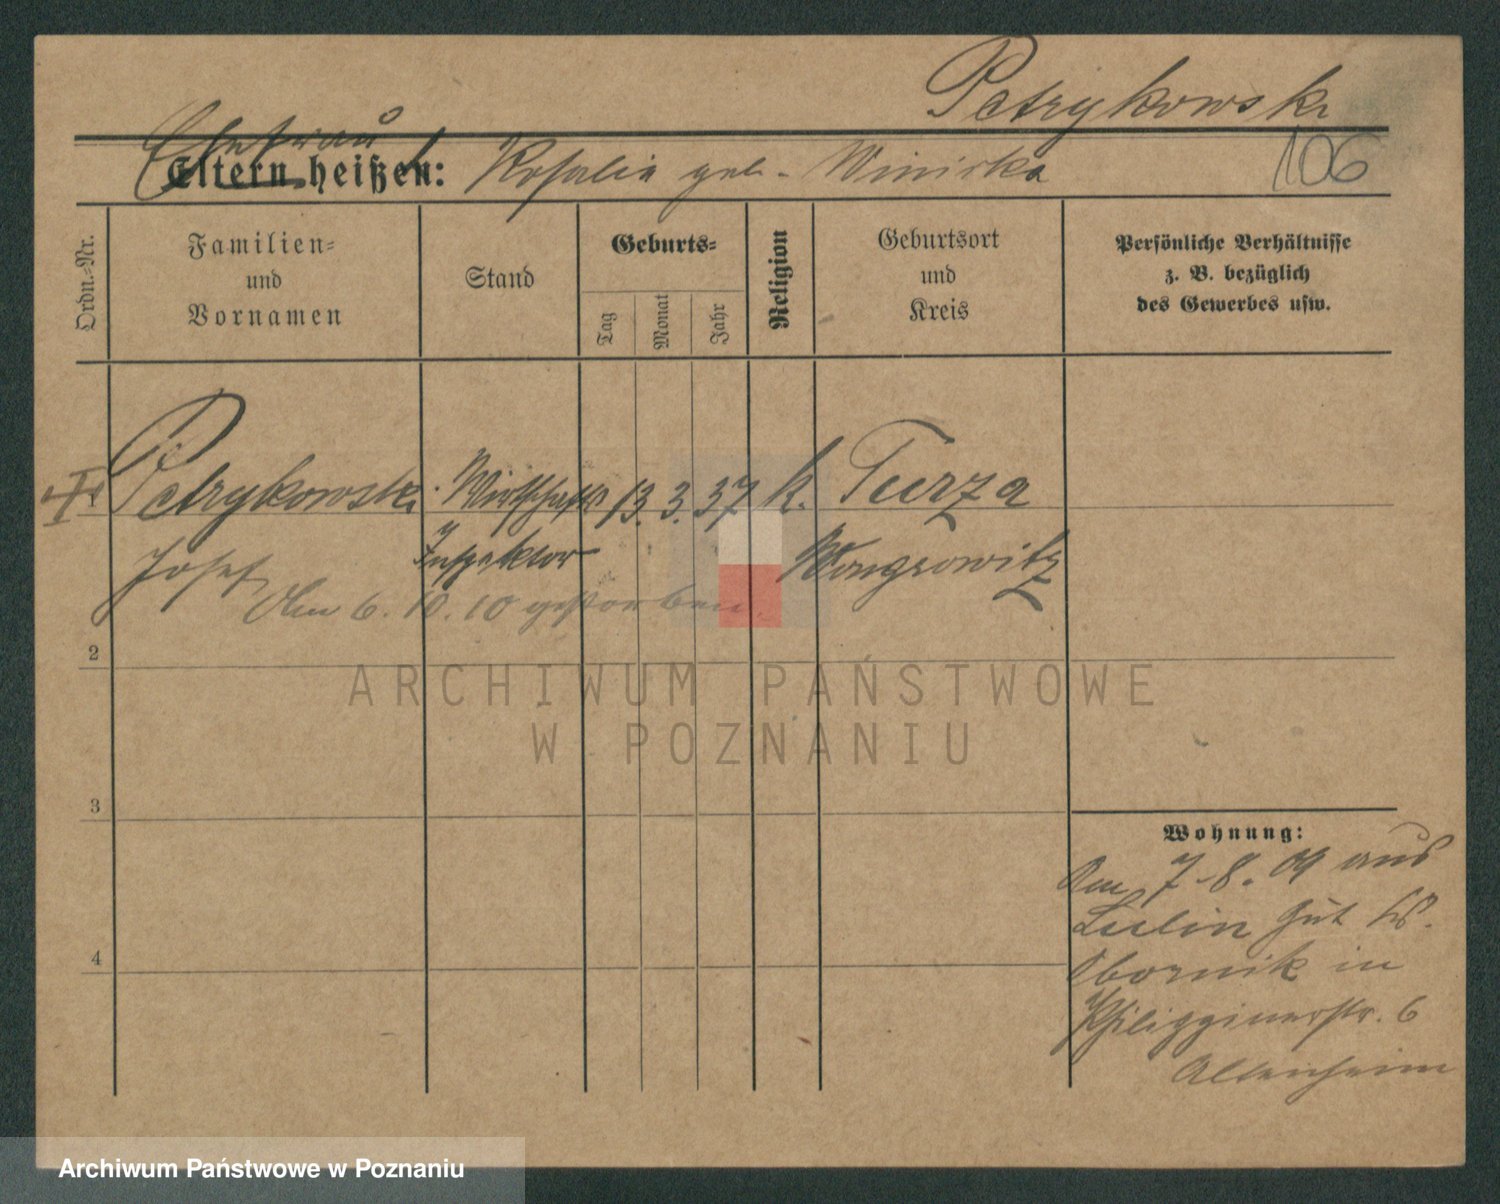 Petrykowski
Ehefrau
Eltern heißen: Rosalie geb. Winiska
106
Ordn.-Nr.
Familien-
und
Vornamen
Stand
Geburts-
Tag
Monat
Jahr
Religion
Geburtsort
und
Kreis
Persönliche Verhältnisse
z. B. bezüglich
des Gewerbes usw.
Petrykowski Wirtschafts 13. 3. 37 k. Turza
Josef Inspektor Wongrowitz
Am 6. 10. 10 gestorben.
2
ARCHIWUM PAŃSTWOWE
W POZNANIU
3
Wohnung:
Am 7-8. 09 aus
Lulin Gut Kr.
Obornik in
Philippinerstr. 6
Altenheim
4
Archiwum Państwowe w Poznaniu